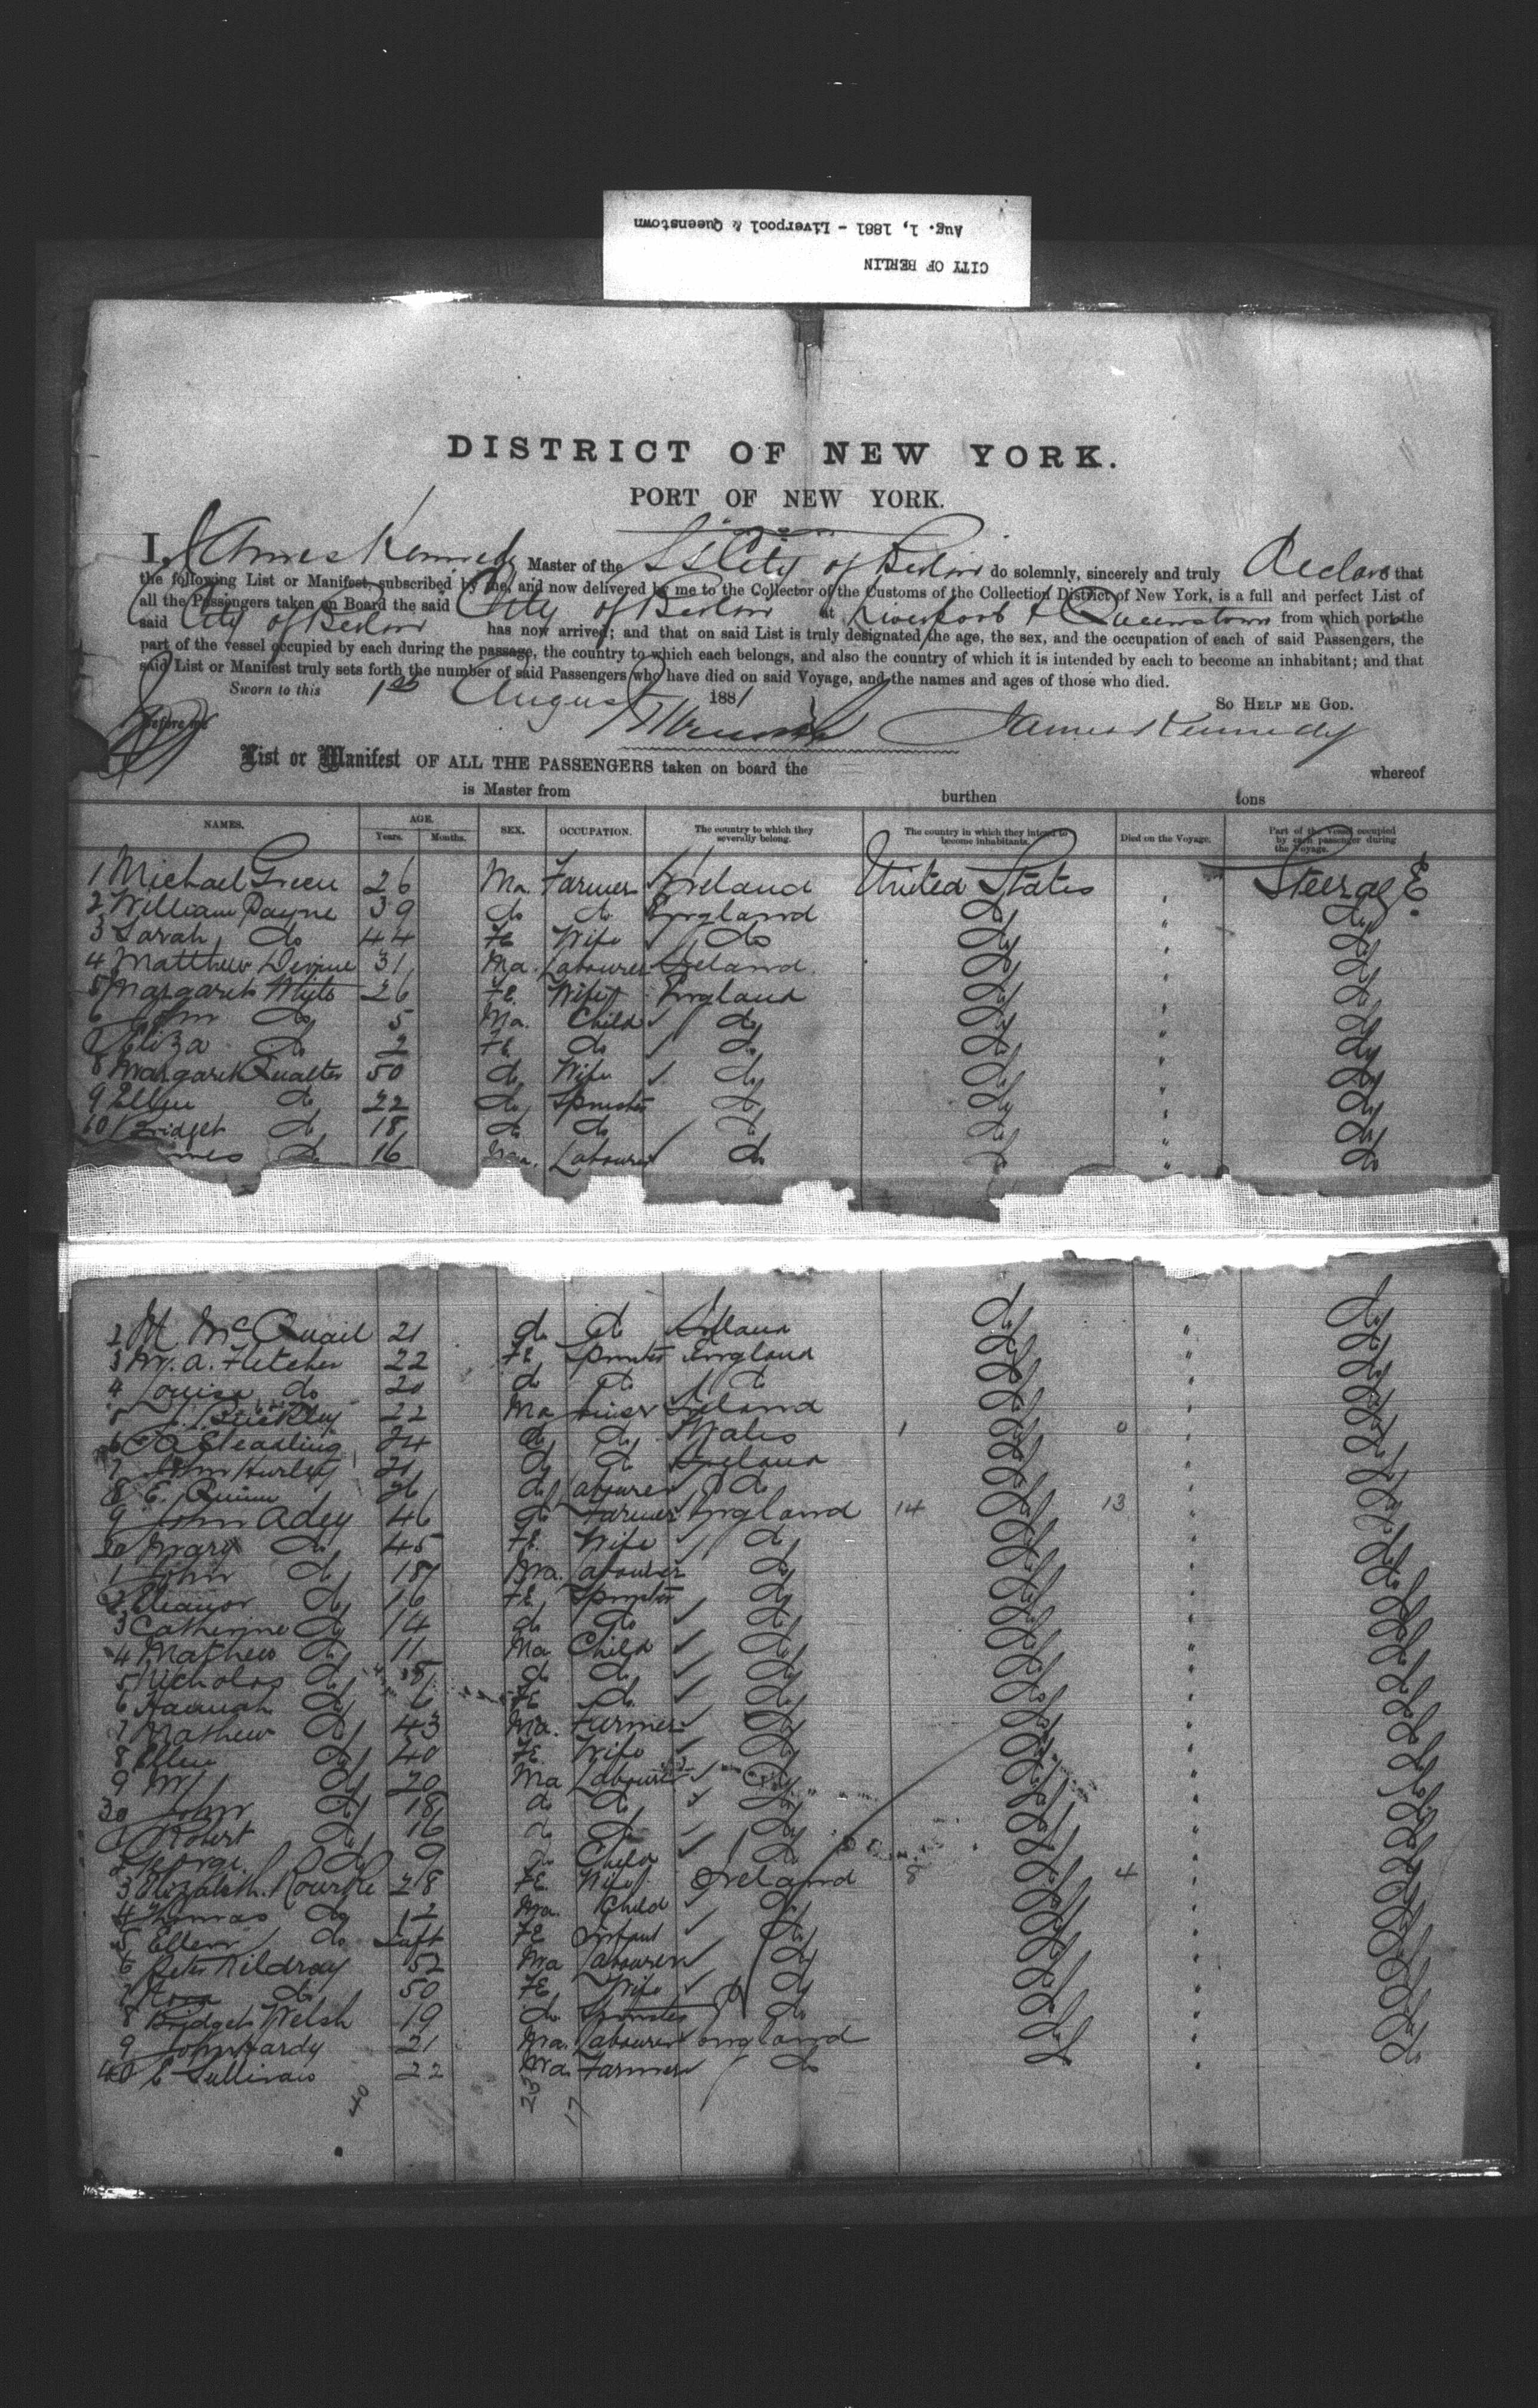 CITY OF BERLIN
Aug. 1, 1881 - Liverpool & Queenstown
DISTRICT OF NEW YORK.
PORT OF NEW YORK.
I, James Kennedy Master of the SS City of Berlin do solemnly, sincerely and truly declare that
the following List or Manifest, subscribed by me, and now delivered by me to the Collector of the Customs of the Collection District of New York, is a full and perfect List of
all the Passengers taken on Board the said City of Berlin at Liverpool & Queenstown from which port the
said City of Berlin has now arrived; and that on said List is truly designated the age, the sex, and the occupation of each of said Passengers, the
part of the vessel occupied by each during the passage, the country to which each belongs, and also the country of which it is intended by each to become an inhabitant; and that
said List or Manifest truly sets forth the number of said Passengers who have died on said Voyage, and the names and ages of those who died.
Sworn to this 1st August 1881 So Help me God.
Before me James Kennedy
List or Manifest OF ALL THE PASSENGERS taken on board the whereof
is Master from burthen tons
NAMES. AGE. Years. Months. SEX. OCCUPATION. The country to which they severally belong. The country in which they intend to become inhabitants. Died on the Voyage. Part of the vessel occupied by each passenger during the voyage.
1 Michael Green 26 Ma. Farmer Ireland United States " Steerage
2 William Payne 39 do do England do " do
3 Sarah do 44 Fe Wife do do " do
4 Matthew Devine 31 Ma. Labourer Ireland do " do
5 Margaret 26 Fe. Wife England do " do
6 John do 5 Ma. Child do do " do
7 Eliza do 2 Fe do do do " do
8 Margaret Qualter 50 do Wife do do " do
9 Ellen do 22 do Spinster do do " do
10 Bridget do 18 do do do do " do
mes do 16 Ma. Labourer do do " do
2 M. McQuail 21 do do Ireland do " do
3 M. A. Fletcher 22 Fe Spinster England do " do
4 Louisa do 20 do do do do " do
5 Buckley 22 Ma Miner Ireland do " do
6 24 do do Wales 1 do 0 " do
7 John Hurley 21 do do Ireland do " do
8 E. Quinn 26 do Labourer do do " do
9 John Adey 46 do Farmer England 14 do 13 " do
20 Mary do 45 Fe. Wife do do " do
1 John do 18 Ma. Labourer do do " do
2 Eleanor do 16 Fe. Spinster do do " do
3 Catherine do 14 do do do do " do
4 Mathew do 11 Ma Child do do " do
5 Nicholas do do do do do " do
6 Hannah do 6 Fe do do do " do
7 Mathew do 43 Ma. Farmer do do " do
8 Ellen do 40 Fe. Wife do do " do
9 Wm do 20 Ma Labourer do do " do
30 John do 18 do do do do " do
1 Robert do 16 do do do do " do
2 George do 9 do Child do do " do
3 Elizabeth Rourke 28 Fe. Wife Ireland 8 do 4 " do
4 Thomas do Ma. Child do do " do
5 Ellen do Inft Fe Infant do do " do
6 Peter Kildray 52 Ma Labourer do do " do
7 do 50 Fe Wife do do " do
8 Bridget Welsh 19 do Spinster do do " do
9 John Hardy 21 Ma. Labourer England do " do
40 E Sullivan 22 Ma. Farmer do do " do
40 23 17